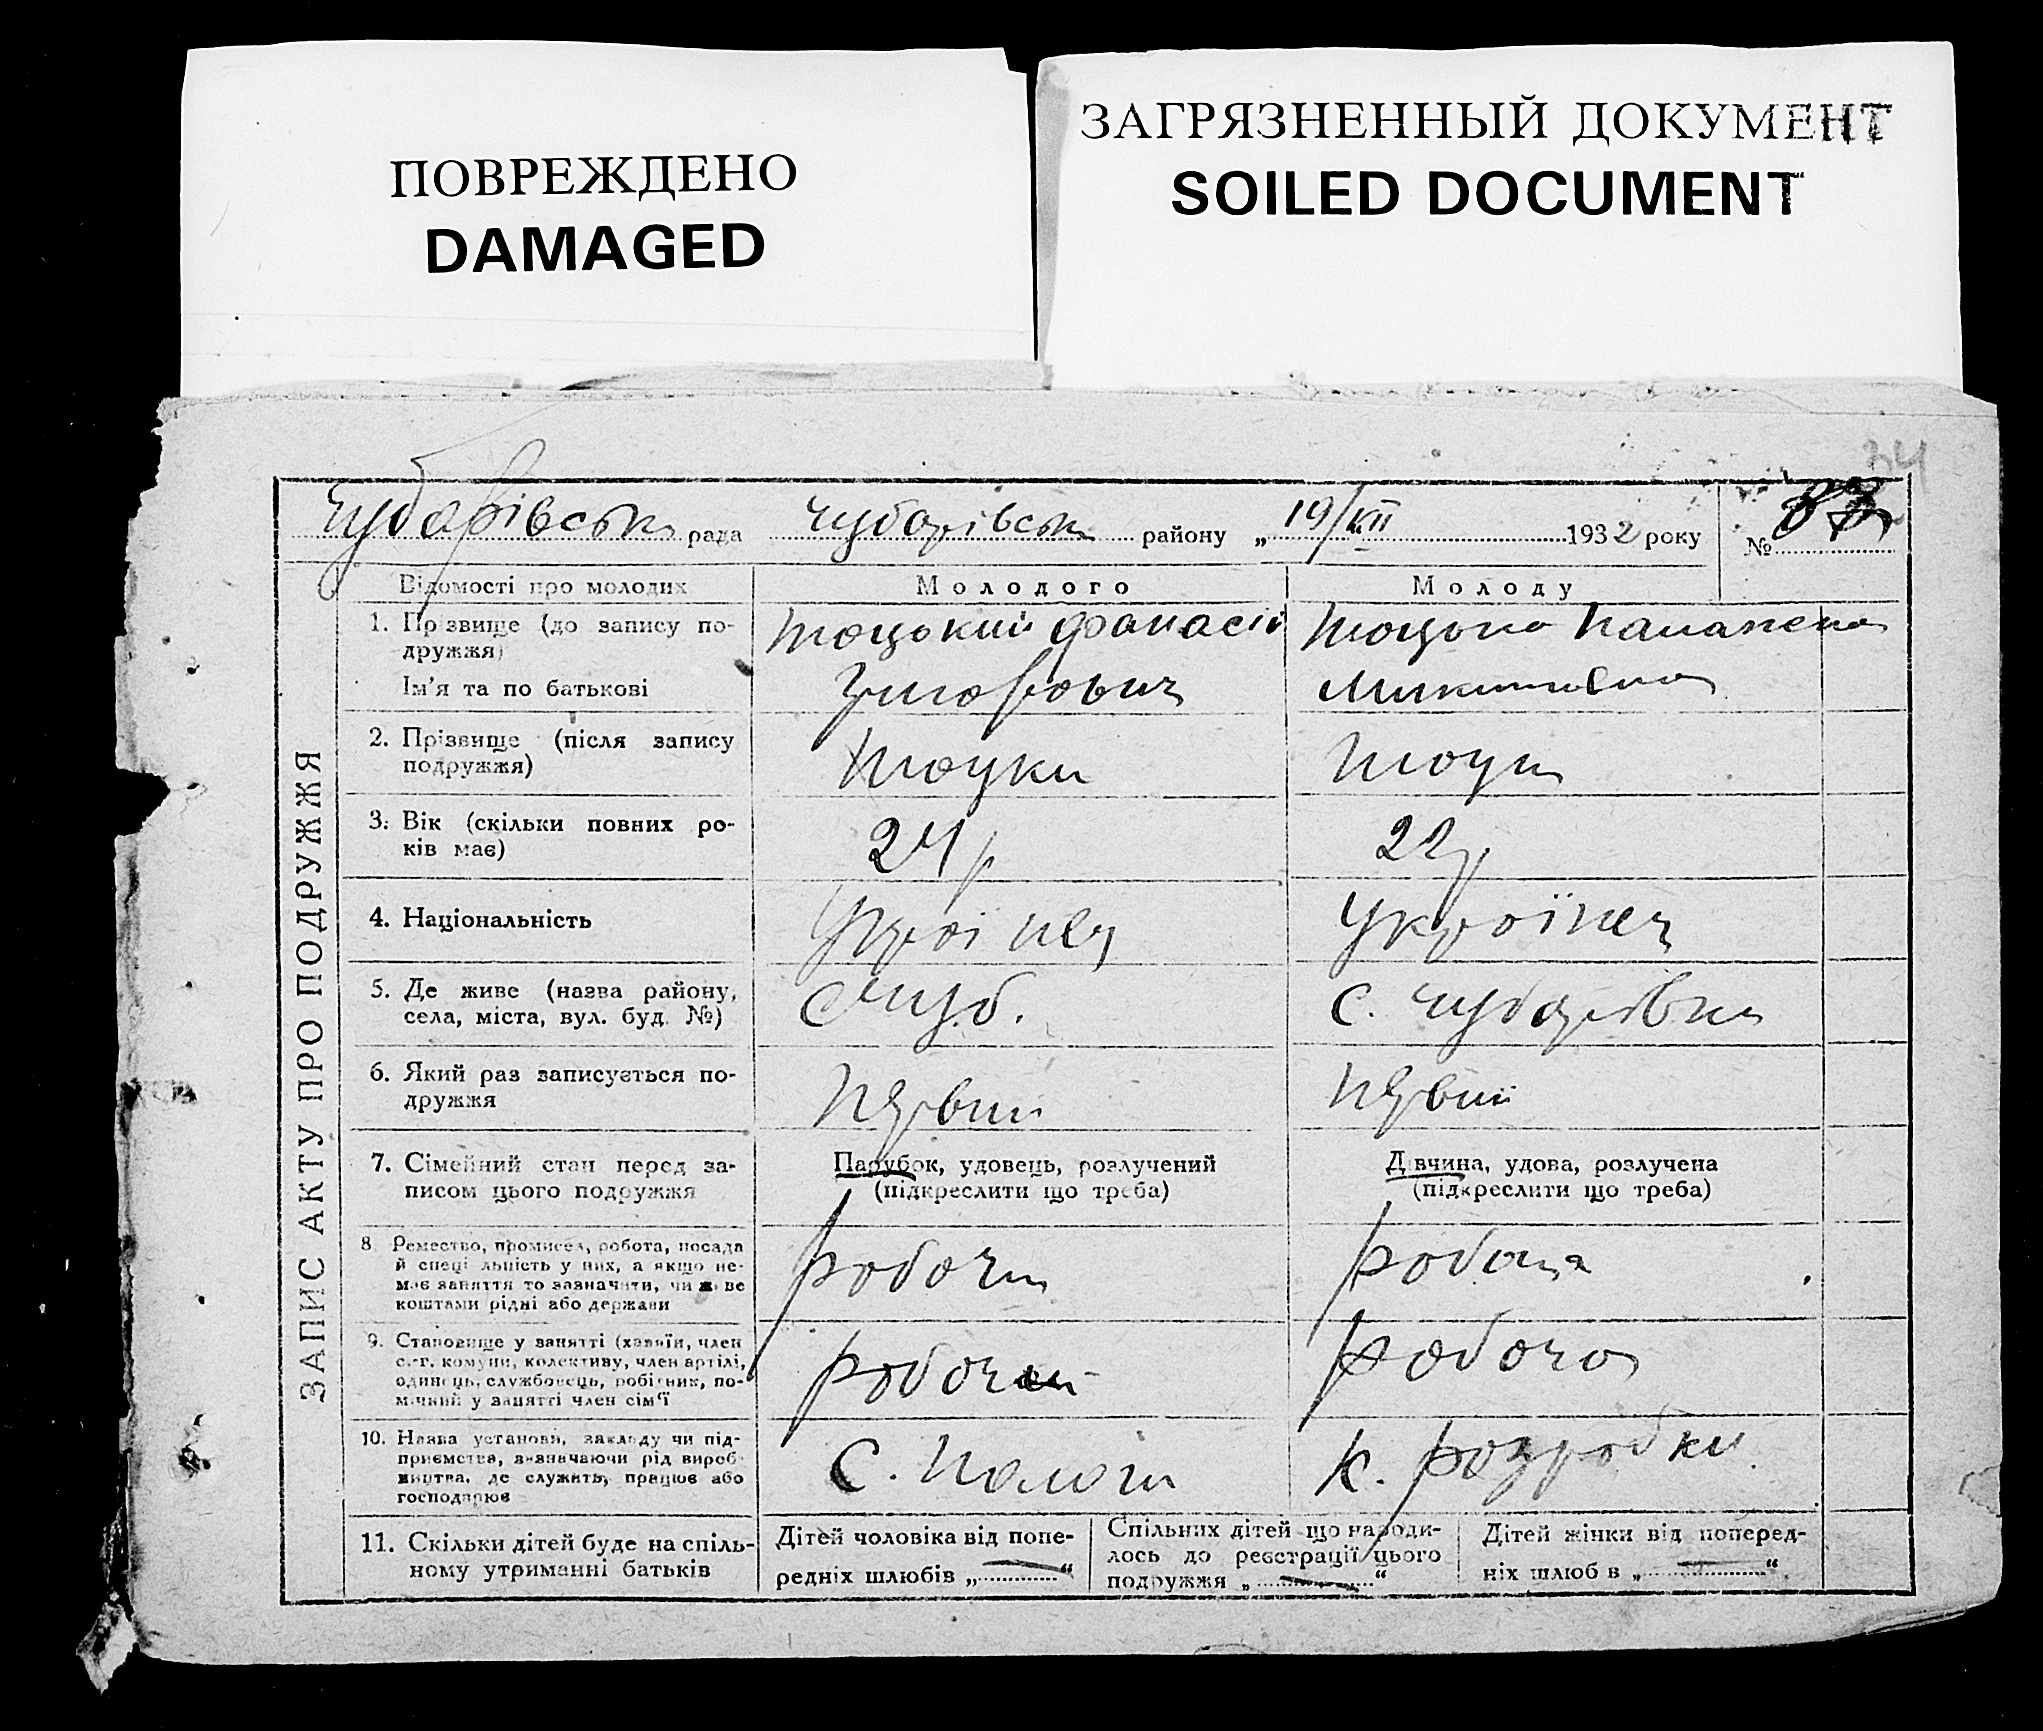 ПОВРЕЖДЕНО
DAMAGED
ЗАГРЯЗНЕННЫЙ ДОКУМЕНТ
SOILED DOCUMENT
34
Чубарівська рада Чубарівськ району „19/VII 1932 року №
ЗАПИС АКТУ ПРО ПОДРУЖЖЯ
Відомості про молодих Молодого Молоду
1. Прізвище (до запису подружжя)
Ім'я та по батькові
Тоцький Фанасій
Григорович
Тоцька
Микитовна
2. Прізвище (після запису
подружжя)
3. Вік (скільки повних ро-
ків має)
24 р
22 р
4. Національність
Українец
Українец
5. Де живе (назва району,
села, міста, вул. буд. №)
с Чуб.
с. Чубарівка
6. Який раз записується по-
дружжя
Первий
Первий
7. Сімейний стан перед за-
писом цього подружжя
Парубок, удовець, розлучений
(підкреслити що треба)
Дівчина, удова, розлучена
(підкреслити що треба)
8. Ремество, промисел, робота, посада
й спеціальність у них, а якщо не-
має заняття то зазначити, чи живе
коштами рідні або держави
робочий
робоча
9. Становище у занятті (хазяїн, член
с.-г. комуни, колективу, член артілі,
одинець, службовець, робітник, по-
мічний у занятті член сім'ї
робочий
робоча
10. Назва установи, закладу чи під-
приємства, зазначаючи рід вироб-
ництва, де служить, працює або
господарює
с. Пологи
к. розробки
11. Скільки дітей буде на спіль-
ному утриманні батьків
Дітей чоловіка від попе-
редніх шлюбів „—“
Спільних дітей що народи-
лось до реєстрації цього
подружжя „—“
Дітей жінки від поперед-
ніх шлюбів „—“